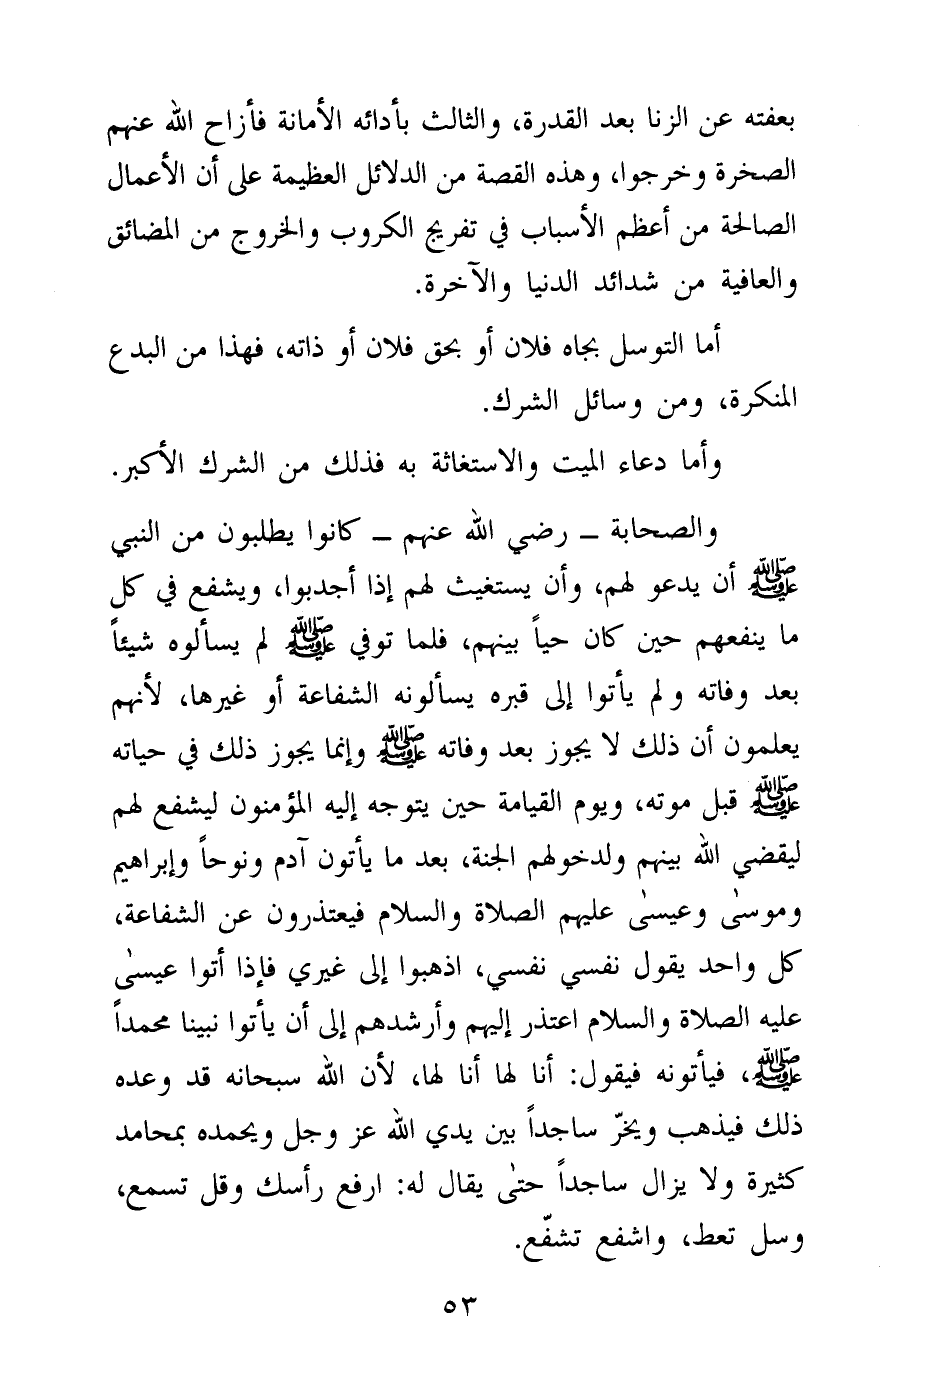 بعفته عن الزنا بعد القدرة، والثالث بأدائه الأمانة فأزاح الله عنهم
الصخرة وخرجوا، وهذه القصة من الدلائل العظيمة على أن الأعمال
الصالحة من أعظم الأسباب في تفريج الكروب والخروج من المضائق
والعافية من شدائد الدنيا والآخرة.
أما التوسل بجاه فلان أو بحق فلان أو ذاته، فهذا من البدع
المنكرة، ومن وسائل الشرك.
وأما دعاء الميت والاستغاثة به فذلك من الشرك الأكبر.
والصحابة ــ رضي الله عنهم ــ كانوا يطلبون من النبي
ﷺ أن يدعو لهم، وأن يستغيث لهم إذا أجدبوا، ويشفع في كل
ما ينفعهم حين كان حياً بينهم، فلما توفي ﷺ لم يسألوه شيئاً
بعد وفاته ولم يأتوا إلى قبره يسألونه الشفاعة أو غيرها، لأنهم
يعلمون أن ذلك لا يجوز بعد وفاته ﷺ وإنما يجوز ذلك في حياته
ﷺ قبل موته، ويوم القيامة حين يتوجه إليه المؤمنون ليشفع لهم
ليقضي الله بينهم ولدخولهم الجنة، بعد ما يأتون آدم ونوحاً وإبراهيم
وموسىٰ وعيسىٰ عليهم الصلاة والسلام فيعتذرون عن الشفاعة،
كل واحد يقول نفسي نفسي، اذهبوا إلى غيري فإذا أتوا عيسىٰ
عليه الصلاة والسلام اعتذر إليهم وأرشدهم إلى أن يأتوا نبينا محمداً
ﷺ، فيأتونه فيقول: أنا لها أنا لها، لأن الله سبحانه قد وعده
ذلك فيذهب ويخرّ ساجداً بين يدي الله عز وجل ويحمده بمحامد
كثيرة ولا يزال ساجداً حتىٰ يقال له: ارفع رأسك وقل تسمع،
وسل تعط، واشفع تشفّع.
٥٣